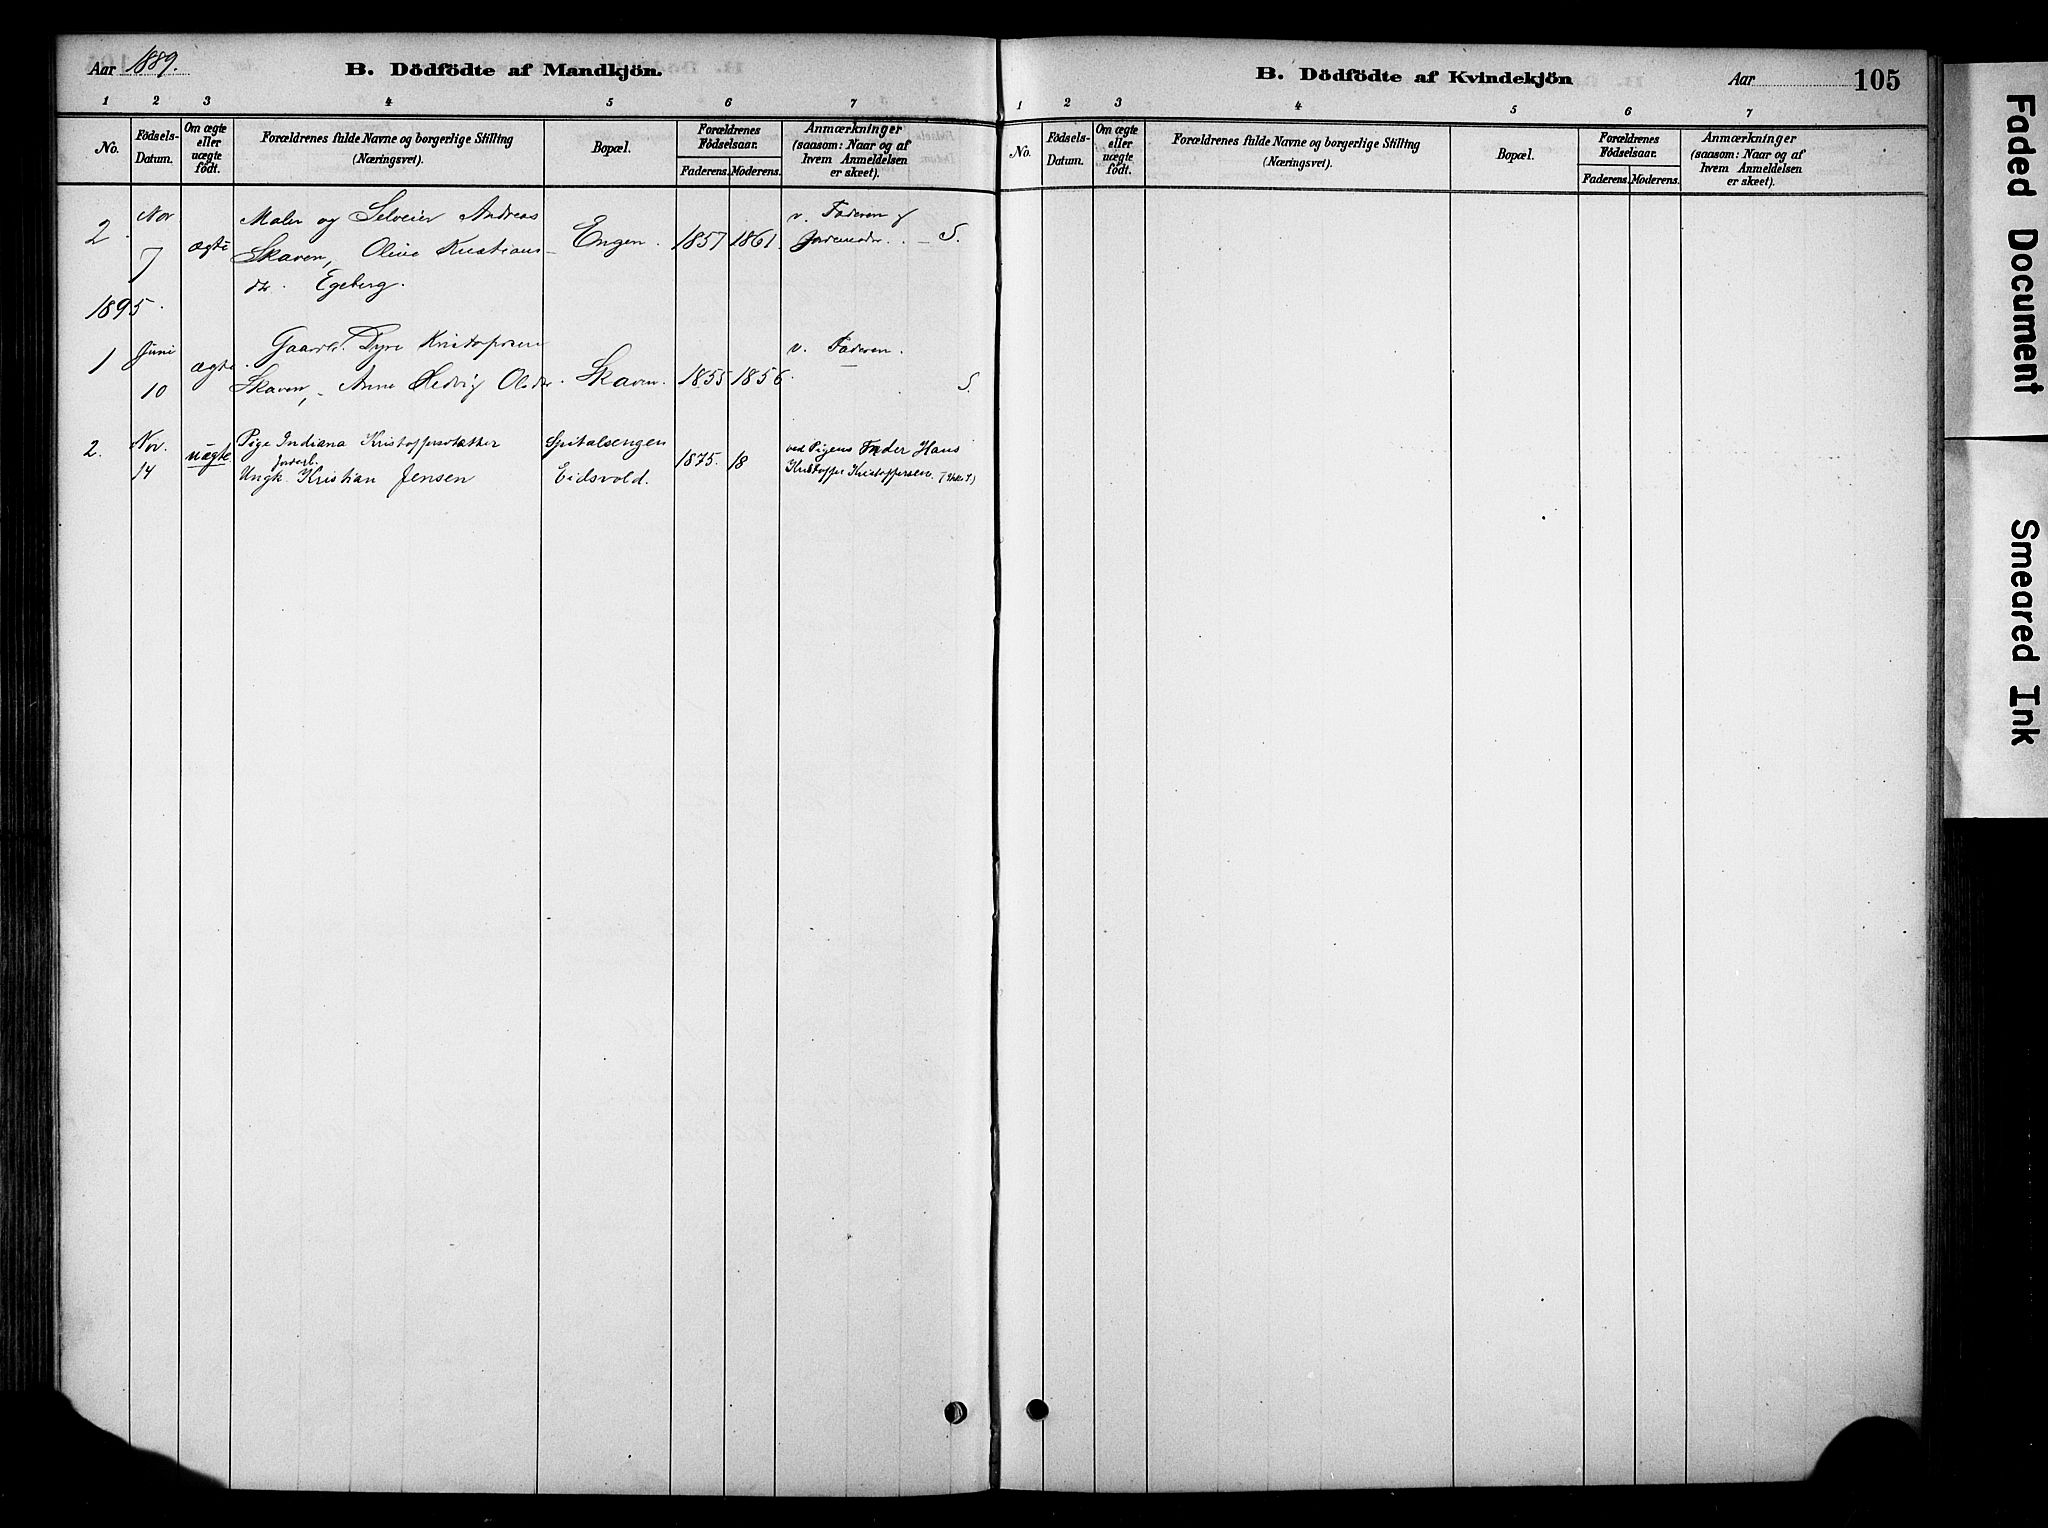 Aar 1889.
B. Dödfödte af Mandkjön.
1 2 3 4 5 6 7
No.
Födsels-Datum.
Om ægte eller uægte födt.
Forældrenes fulde Navne og borgerlige Stilling (Næringsvei).
Bopæl.
Forældrenes Födselsaar.
Faderens. Moderens.
Anmærkninger (saasom: Naar og af hvem Anmeldelsen er skeet).
2. Nov 7 ægte
Maler og Selveier Andreas
Skaven, Oline Kristians-
dr. Egeberg.
Engen. 1857 1861.
v. Faderen og
Jordemodr. - S.
1895.
1 Juni 10 ægte
Gaardb. Dyre Kristophersen
Skaven, Anne Hedvig Olsdr.
Skaven. 1855 1856.
v. Faderen.
S.
2. Nov. 14 uægte
Pige Indiana Kristoffersdatter
Ungk. Kristian Jensen
Spitalsengen
Eidsvold.
1875. 18
ved Pigens Fader Hans
Kristoffer Kristoffersen.
B. Dödfödte af Kvindekjön
Aar
105
1 2 3 4 5 6 7
No.
Födsels-Datum.
Om ægte eller uægte födt.
Forældrenes fulde Navne og borgerlige Stilling (Næringsvei).
Bopæl.
Forældrenes Födselsaar.
Faderens. Moderens.
Anmærkninger (saasom: Naar og af hvem Anmeldelsen er skeet).
Faded Document
Smeared Ink